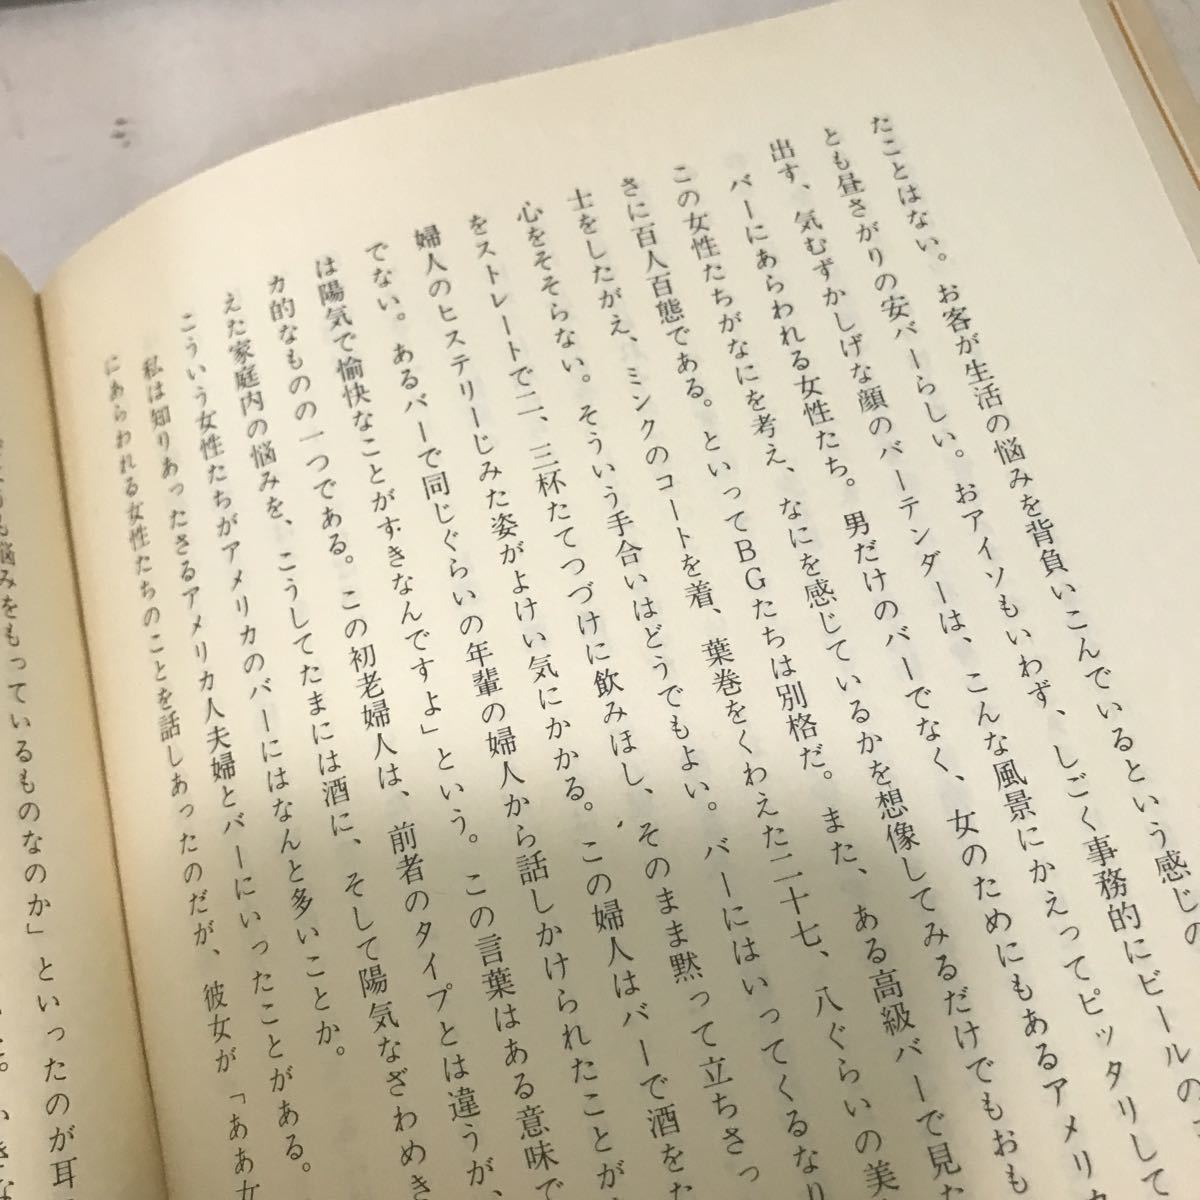 たことはない。お客が生活の悩みを背負いこんでいるという感じの
とも昼さがりの安バーらしい。おアイソもいわず、しごく事務的にビールの
出す、気むずかしげな顔のバーテンダーは、こんな風景にかえってピッタリして
バーにあらわれる女性たち。男だけのバーでなく、女のためにもあるアメリカ
この女性たちがなにを考え、なにを感じているかを想像してみるだけでもおも
さに百人百態である。といってＢＧたちは別格だ。また、ある高級バーで見た
士をしたがえ、ミンクのコートを着、葉巻をくわえた二十七、八ぐらいの美
心をそそらない。そういう手合いはどうでもよい。バーにはいってくるなり
をストレートで二、三杯たてつづけに飲みほし、そのまま黙って立ちさっ
婦人のヒステリーじみた姿がよけい気にかかる。この婦人はバーで酒をた
でない。あるバーで同じぐらいの年輩の婦人から話しかけられたことが
は陽気で愉快なことがすきなんですよ」という。この言葉はある意味で
カ的なものの一つである。この初老婦人は、前者のタイプとは違うが、
えた家庭内の悩みを、こうしてたまには酒に、そして陽気なざわめき
こういう女性たちがアメリカのバーにはなんと多いことか。
私は知りあったさるアメリカ人夫婦とバーにいったことがある。
にあらわれる女性たちのことを話しあったのだが、彼女が「ああ女
も悩みをもっているものなのか」といったのが耳